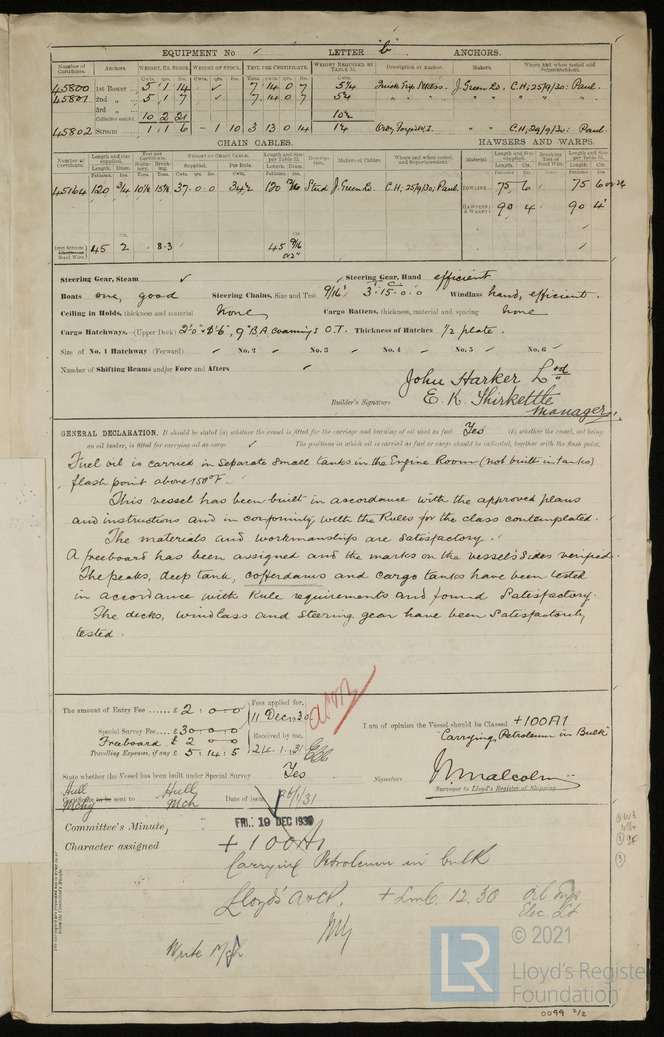 EQUIPMENT No / LETTER "b" ANCHORS.
Number of Certificate. Anchors. WEIGHT, EX. STOCK WEIGHT OF STOCK. TEST, PER CERTIFICATE. WEIGHT REQUIRED BY TABLE 31. Description of Anchor. Makers. Where and when tested and Superintendent.
Cwts. qrs. lbs. Cwts. qrs. lbs. Tons. cwts. qrs. lbs. Cwts.
45800 1st Bower 5 1 14 ✓ 7 14 0 7 5¼ J. Green Ld. C.H; 25/9/30: Paul.
45801 2nd „ 5 1 7 ✓ 7 14 0 7 5¼ " " " " " "
3rd „
Collective weight 10 2 21 10½
45802 Stream 1 1 6 – 1 10 3 13 0 14 1¼ " " C.H; 29/9/30: Paul.
CHAIN CABLES. HAWSERS AND WARPS.
Number of Certificate. Length and size supplied. Test per Certificate. WEIGHT OF CHAIN CABLE. Length and Size per Table 31. Description. Makers of Cables. Where and when tested, and Superintendent. Material Length and Size supplied. Breaking Test of Steel Wire. Length and Size per Table 31.
45164 120 ¾ 37.0.0 34½ 120 Stud J. Green Ld. C.H; 25/9/30; Paul TOWLINE 75 6 75 6
HAWSERS & WARPS 90 4 90 4
Steel Wire 45 2 8.3 45 9/16 or 2"
Steering Gear, Steam ✓ Steering Gear, Hand efficient
Boats one, good Steering Chains, Size and Test 9/16" 3.15.0.0 Windlass hand, efficient.
Ceiling in Holds, thickness and material None Cargo Battens, thickness, material and spacing None
Cargo Hatchways.—(Upper Deck) 9" B.A. Coamings O.T. Thickness of Hatches ½ plate.
Size of No. 1 Hatchway (Forward) ✓ No. 2 ✓ No. 3 ✓ No. 4 ✓ No. 5 ✓ No. 6 ✓
Number of Shifting Beams and/or Fore and Afters ✓
John Harker Ltd
Builder's Signature E. K. Shirkettle
Manager.
GENERAL DECLARATION. It should be stated (a) whether the vessel is fitted for the carriage and burning of oil used as fuel Yes (b) whether the vessel, not being
an oil tanker, is fitted for carrying oil as cargo ✓ The positions in which oil is carried as fuel or cargo should be indicated, together with the flash point.
Fuel oil is carried in separate small tanks in the Engine Room (not built in tanks)
flash point above 150°F.
This vessel has been built in accordance with the approved plans
and instructions and in conformity with the Rules for the class contemplated.
The materials and workmanship are satisfactory.
A freeboard has been assigned and the marks on the vessel's sides verified.
The peaks, deep tank, cofferdams and cargo tanks have been tested
in accordance with Rule requirements and found satisfactory.
The decks, windlass and steering gear have been satisfactorily
tested.
The amount of Entry Fee ...... £ 2 : 0 : 0 Fees applied for,
11 Dec 1930
Special Survey Fee.... £30 : 0 : 0
Freeboard £ 2 0 0 Received by me,
Travelling Expenses, if any £ 5 : 14 : 5 24.1.31
I am of opinion the Vessel should be Classed +100A1
"Carrying Petroleum in Bulk"
State whether the Vessel has been built under Special Survey Yes
Signature W. Malcolm
Surveyor to Lloyd's Register of Shipping.
Hull Hull
Certificate to be sent to Mchy Mch Date of issue 26/1/31
Committee's Minute, FRI. 19 DEC 1930
Character assigned +100A1
Carrying Petroleum in bulk
Lloyd's A&CP. + LMC. 12.30 Oil Engs
Elec. Lt
Write Mch
© 2021
LR Lloyd's Register
Foundation
0099 2/2